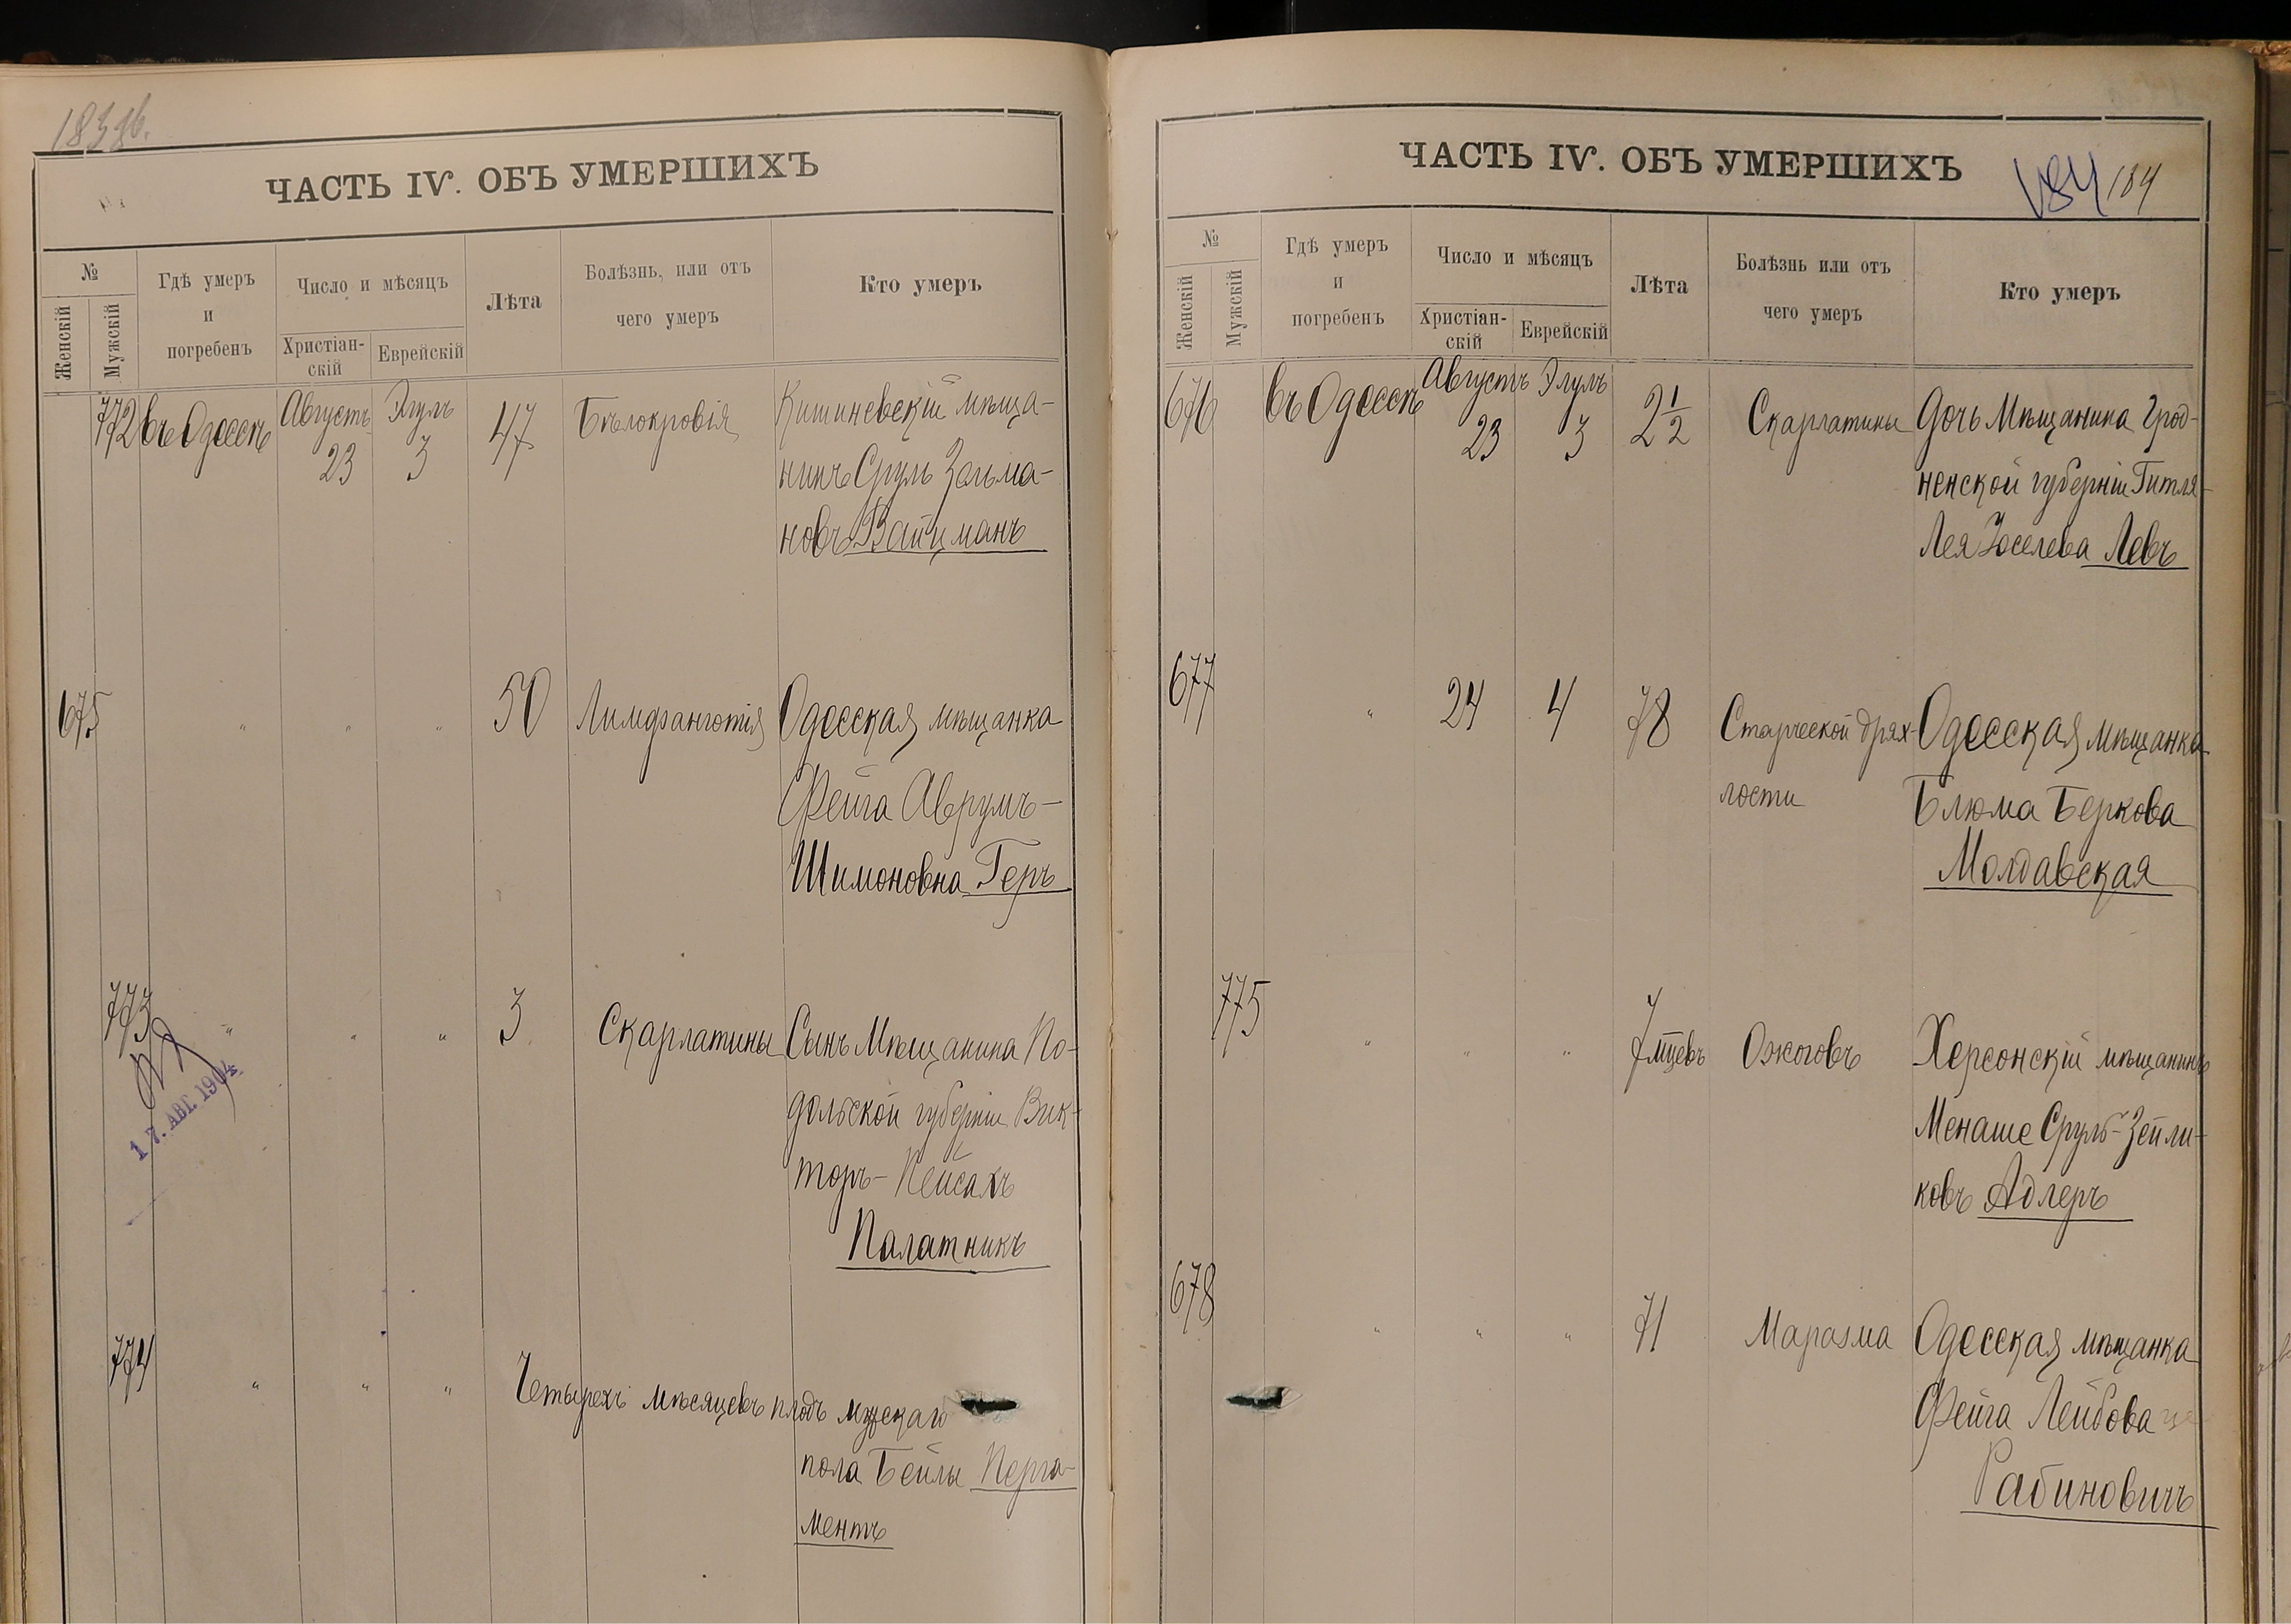 183 об.
ЧАСТЬ IV. ОБЪ УМЕРШИХЪ
№
Женскій
Мужскій
Гдѣ умеръ
и
погребенъ
Число и мѣсяцъ
Христіан-
скій
Еврейскій
Лѣта
Болѣзнь, или отъ
чего умеръ
Кто умеръ
772 въ Одессѣ Августъ Элулъ 47 Бѣлокровія Кишиневскій мѣща-
23 3 нинъ Сруль Зельма-
новъ Вайцманъ
675 " " " 50 Лимфанготія Одесская мѣщанка
Фейга Аврумъ-
Шимоновна Геръ
773 " " " 3 Скарлатины Сынъ Мѣщанина По-
17. АВГ. 1904
дольской губерніи Вик-
торъ-Пейсахъ
Палатникъ
774 " " " Четырехъ мѣсяцевъ плодъ мужскаго
пола Бейлы Перга-
ментъ
ЧАСТЬ IV. ОБЪ УМЕРШИХЪ
184 184
№
Женскій
Мужскій
Гдѣ умеръ
и
погребенъ
Число и мѣсяцъ
Христіан-
скій
Еврейскій
Лѣта
Болѣзнь или отъ
чего умеръ
Кто умеръ
676 въ Одессѣ Августъ Элулъ 2 1/2 Скарлатины Дочь Мѣщанина Грод-
23 3 ненской губерніи Гитля-
Лея Іоселева Левъ
677 " 24 4 78 Старческой дрях- Одесская мѣщанка
лости Блюма Беркова
Молдавская
775 " " " 7 мцевъ Ожоговъ Херсонскій мѣщанинъ
Менаше Сруль-Зейли-
ковъ Адлеръ
678 " " " 71 Маразма Одесская мѣщанка
Фейга Лейбова
Рабиновичъ